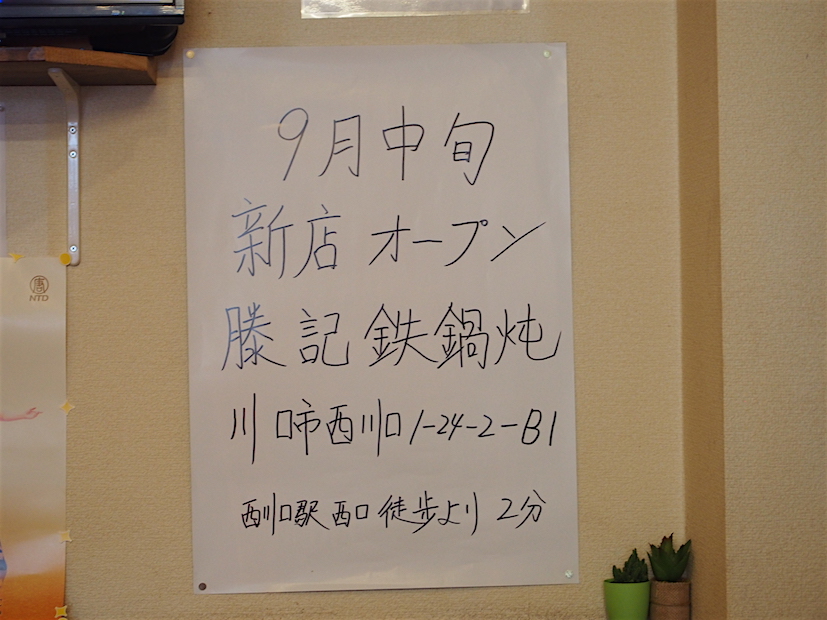 9月中旬
新店オープン
滕記鉄鍋炖
川口市西川口1-24-2-B1
西川口駅西口徒歩より2分
NTD